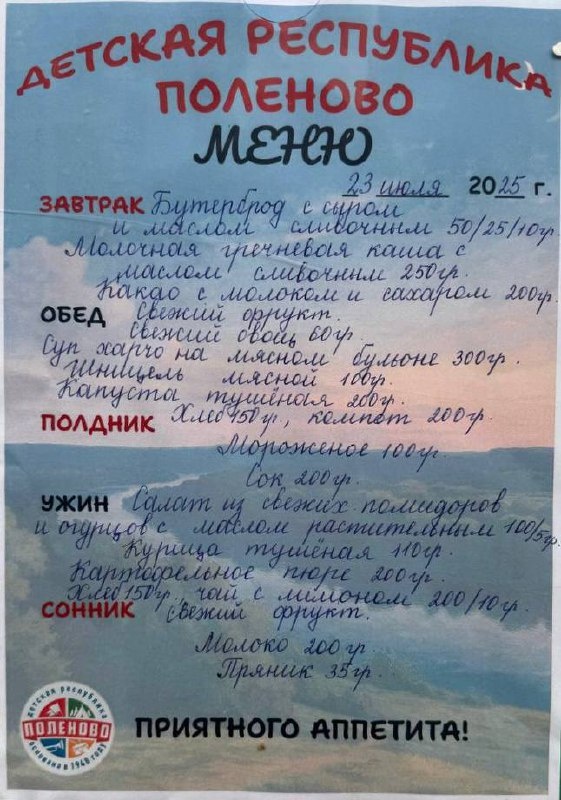 ДЕТСКАЯ РЕСПУБЛИКА
ПОЛЕНОВО
МЕНЮ
23 июля 2025 г.
ЗАВТРАК Бутерброд с сыром
и маслом сливочным 50/25/10гр.
Молочная гречневая каша с
маслом сливочным 250гр.
Какао с молоком и сахаром 200гр.
ОБЕД Свежий фрукт.
Свежий овощ 60гр.
Суп харчо на мясном бульоне 300гр.
Шницель мясной 100гр.
Капуста тушёная 200гр.
Хлеб 150гр, компот 200гр.
ПОЛДНИК
Мороженое 100гр.
Сок 200гр.
УЖИН Салат из свежих помидоров
и огурцов с маслом растительным 100/5гр.
Курица тушёная 110гр.
Картофельное пюре 200гр.
Хлеб 150гр, чай с лимоном 200/10гр.
СОННИК Свежий фрукт.
Молоко 200гр
Пряник 35гр.
детская республика
ПОЛЕНОВО
основана в 1948 году
ПРИЯТНОГО АППЕТИТА!